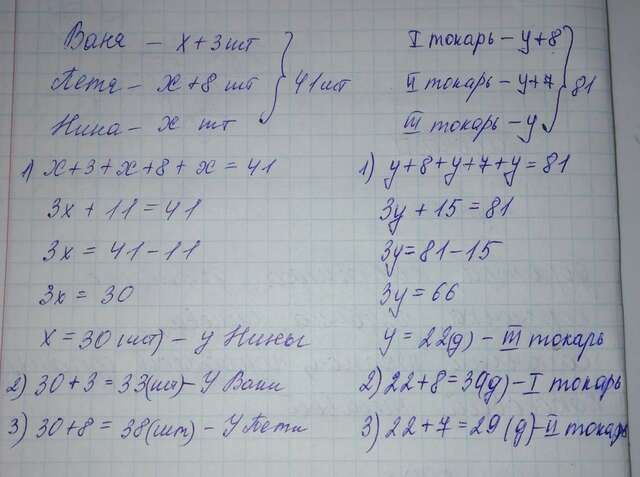 Ваня – x+3 шт
Петя – x+8 шт } 41 шт
Нина – x шт
1) x+3+x+8+x=41
3x+11=41
3x=41-11
3x=30
x=30(шт) – у Нины
2) 30+3=33(шт) – У Вани
3) 30+8=38(шт) – У Пети
I токарь – y+8
II токарь – y+7 } 81
III токарь – y
1) y+8+y+7+y=81
3y+15=81
3y=81-15
3y=66
y=22(д) – III токарь
2) 22+8=30(д) – I токарь
3) 22+7=29(д) – II токарь